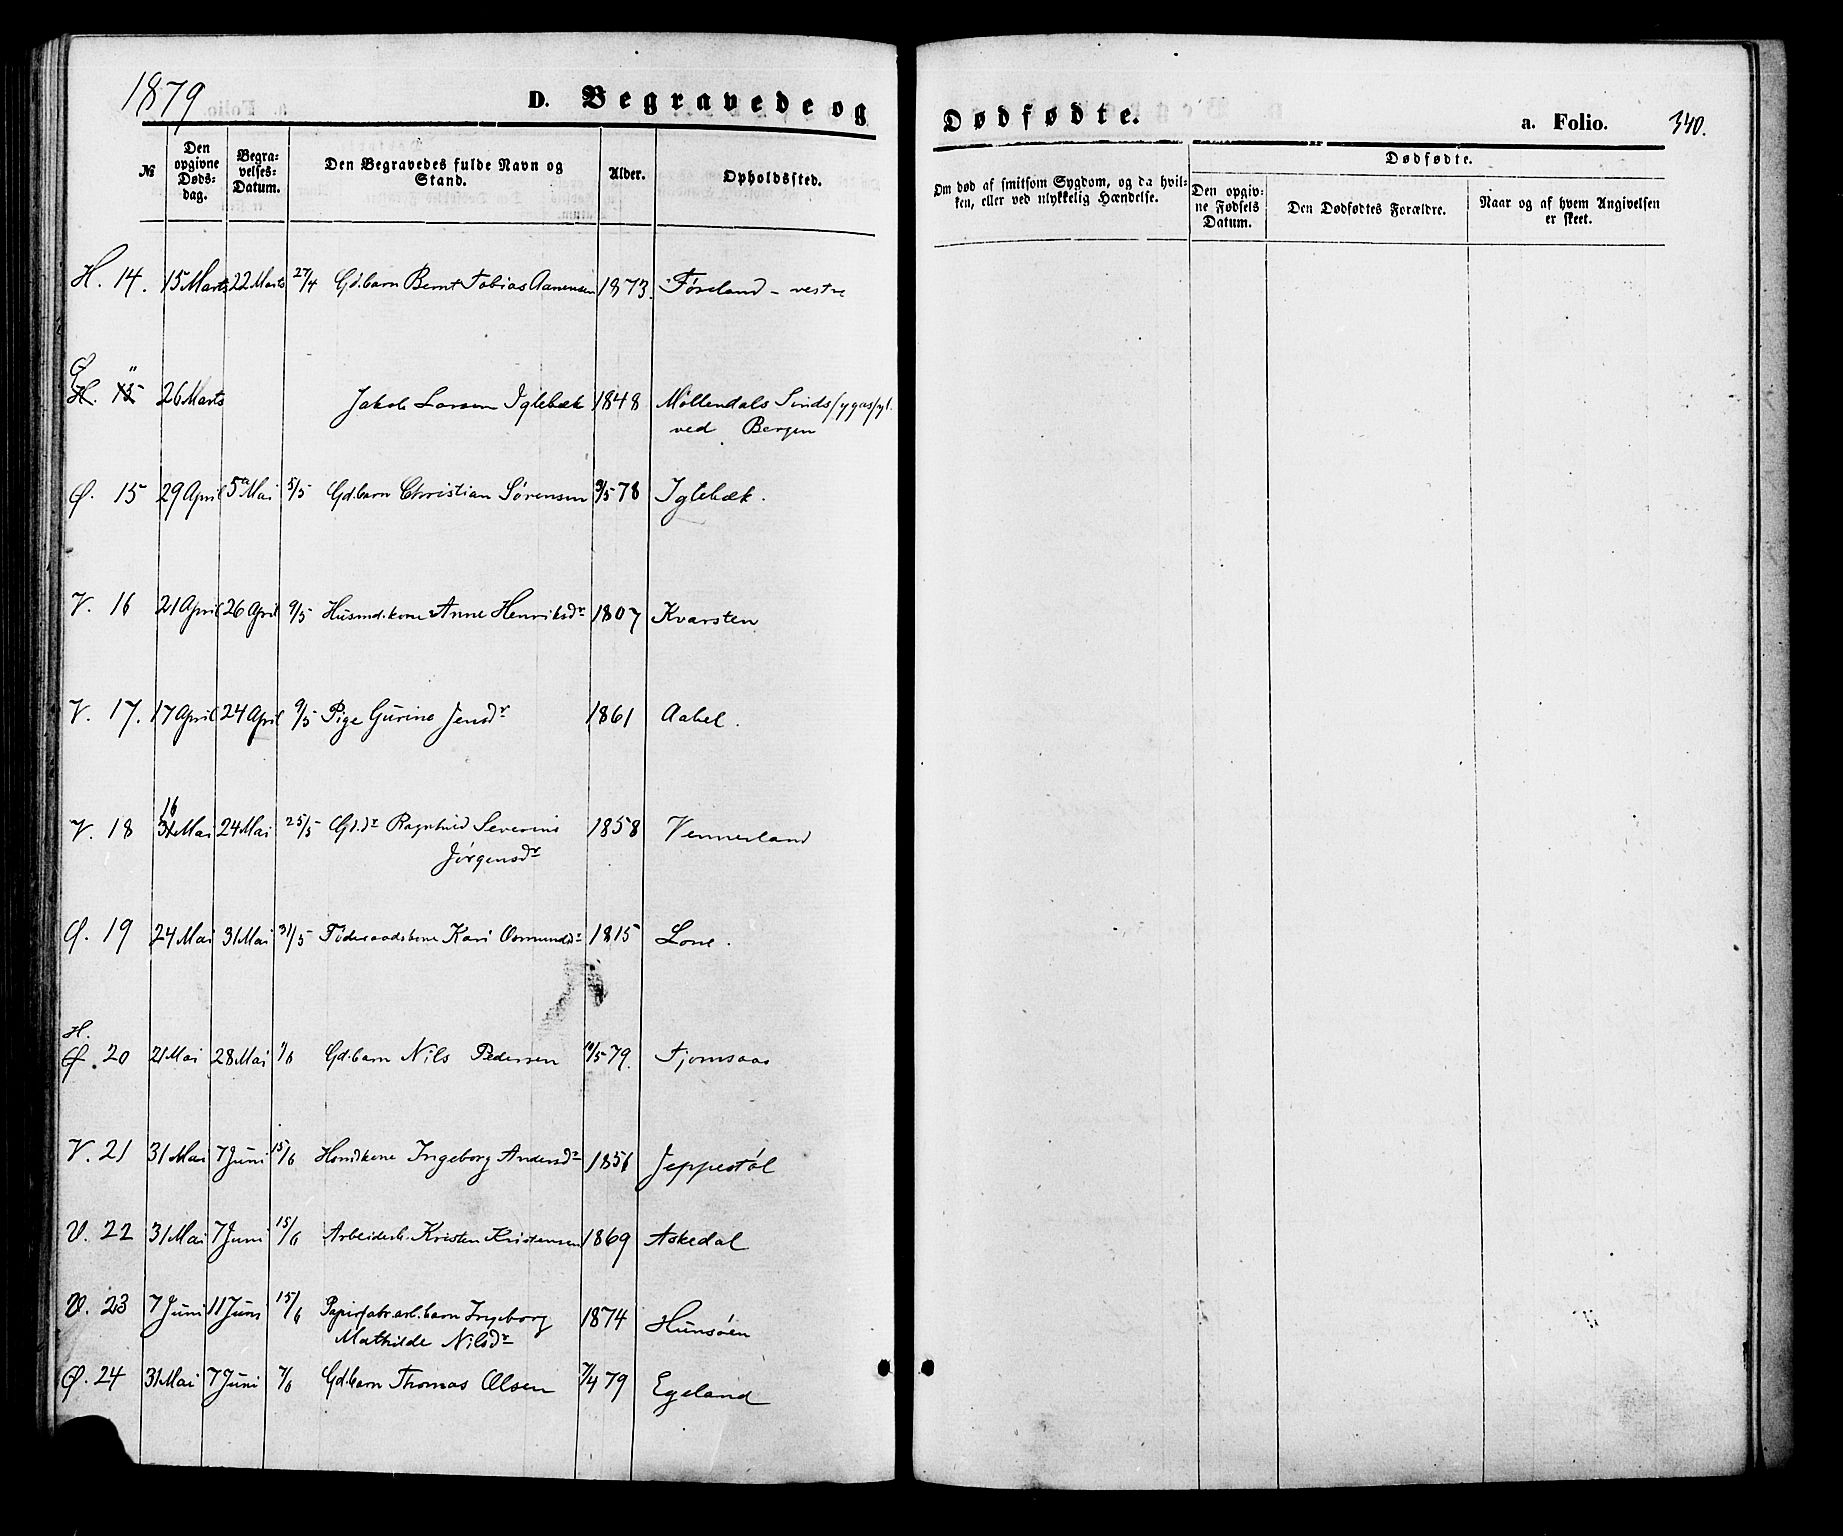 1879
D. Begravede og
Dødfødte.
a. Folio. 340.
№
Den opgivne Døds-dag.
Begra-velses-Datum.
Den Begravedes fulde Navn og Stand.
Alder.
Opholdssted.
Om død af smitsom Sygdom, og da hvil-ken, eller ved ulykkelig Hændelse.
Dødfødte.
Den opgiv-ne Fødsels Datum.
Den Dødfødtes Forældre.
Naar og af hvem Angivelsen er skeet.
H. 14. 15 Marts 22 Marts 27/4 Gd.barn Bernt Tobias Aanensen 1873. Føreland - vestre
Ø. " 26 Marts Jakob Larsen Iglebæk 1848 Møllendals Sindssygeasyl.
ved Bergen
Ø. 15 29 April 5 Mai 5/5 Gd.barn Christian Sørensen 9/5 78 Iglebæk.
V. 16 21 April 26 April 9/5 Husmd.kone Anne Henriksdr 1807 Kvarsten
V. 17. 17 April 24 April 9/5 Pige Gurine Jensdr 1861 Aabel.
V. 18 16 Mai 24 Mai 25/5 Gd.dr Ragnhild Severine 1858 Vennerland
Jørgensdr
Ø. 19 24 Mai 31 Mai 31/5 Føderaadskone Kari Osmundsdr 1815 Lone.
H. 20 21 Mai 28 Mai /6 Gd.barn Nils Pedersen 10/5 79. Fjomsaas
V. 21 31 Mai 7 Juni 15/6 Ingeborg Andersdr 1851 Jeppestøl
V. 22 31 Mai 7 Juni 15/6 Arbeiderb. Kristen Kristensen 1869 Askedal
V. 23 7 Juni 11 Juni 15/6 Papirfabr.arb.barn Ingeborg 1874 Hunsøen
Mathilde Nilsdr
Ø. 24 31 Mai 7 Juni 7/6 Gd.barn Thomas Olsen 7/4 79 Egeland